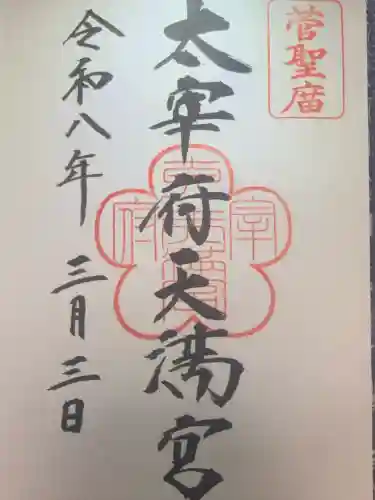 菅聖廟
太宰府天満宮
令和八年 三月三日